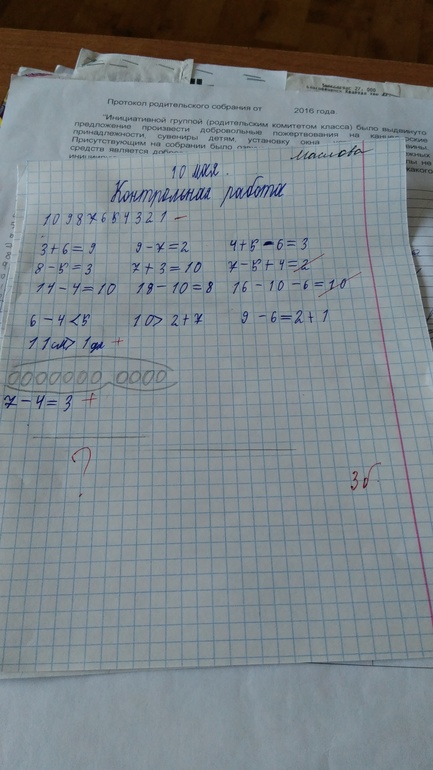 Протокол родительского собрания от 2016 года.
"Инициативной группой (родительским комитетом класса) было выдвинуто
предложение произвести добровольные пожертвования на
принадлежности, сувениры детям, установку окна
Присутствующим на собрании было
средств является
Маслова
10 мая.
Контрольная работа
10 9 8 7 6 5 4 3 2 1 -
3+6=9 9-7=2 4+5-6=3
8-5=3 7+3=10 7-5+4=2
14-4=10 18-10=8 16-10-6=10
6-4<5 10>2+7 9-6=2+1
11см>1дм +
7-4=3 +
?
3б